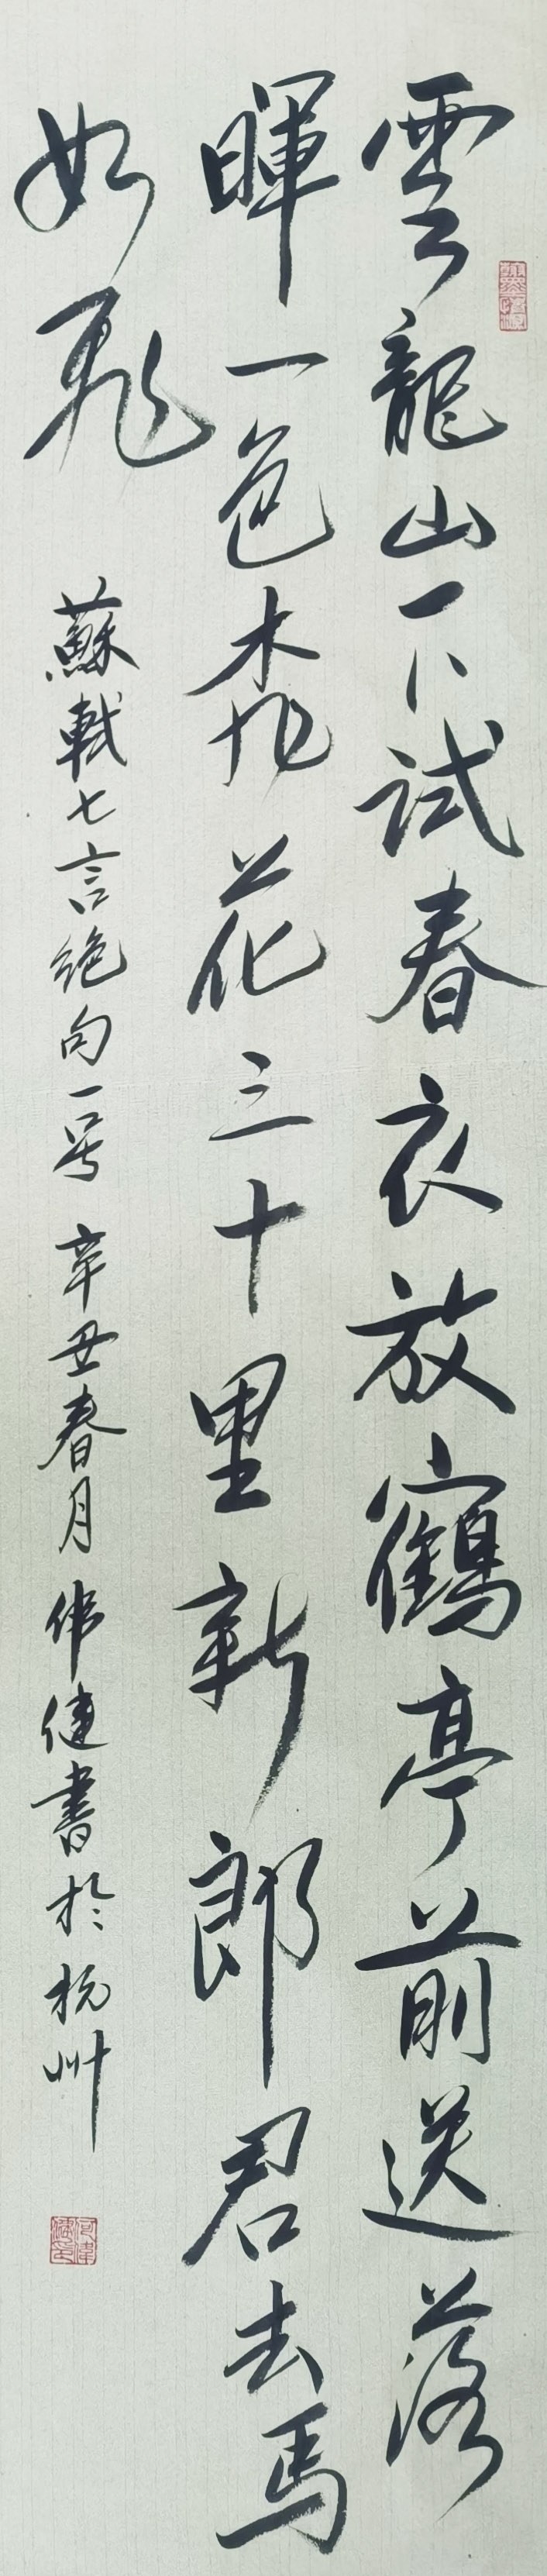 雲龍山下試春衣放鶴亭前送落
暉一色杏花三十里新郎君去馬
如飛
蘇軾七言絶句一号 辛丑春月 偉健書於杭州